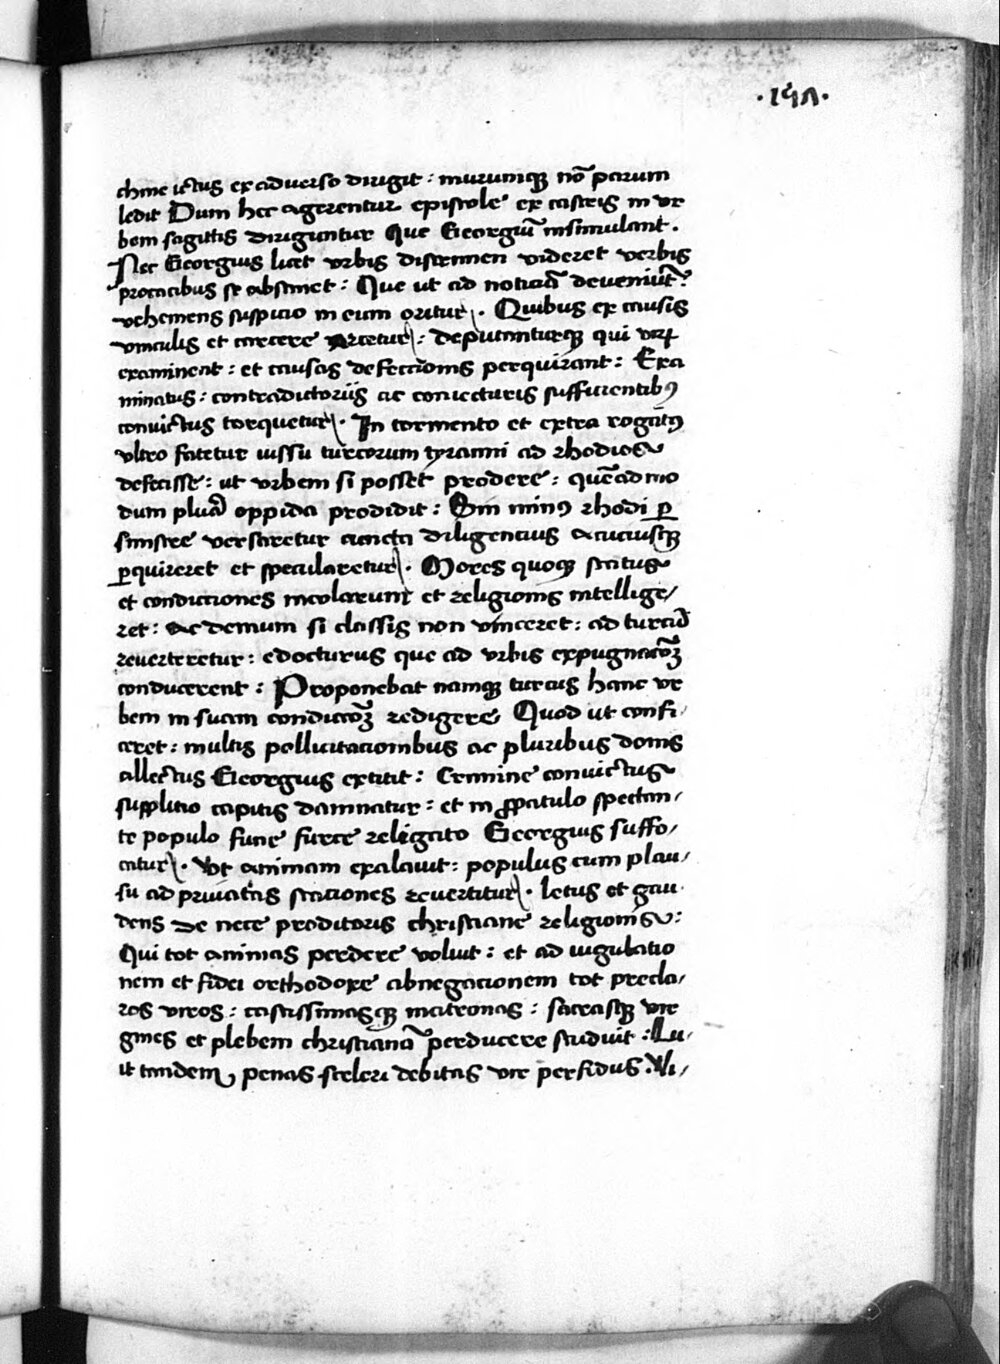 ·157·
chine ictus ex aduerso dirigit : murumqꝫ nō parum
ledit Dum hec agerentur epistole ex castris in vr
bem sagittis diriguntur Que Georgiū insimulant .
Nec Georgius licet vrbis discrimen videret verbis
procacibus se abstinet : Que ut ad noticiā deveniūt :
vehemens suspicio in eum oritur . Quibus ex causis
vinculis et carcere arcetur : deputanturqꝫ qui
examinent : et causas defectionis perquirant : Exa
minatus : contradictoriis ac coniecturis suffurentibꝰ
convictus torquetur . In tormento et extra rogatꝰ
vltro fatetur iussu turcorum tyranni ad rhodios
defecisse : ut vrbem si posset prodere : quēadmo
dum plura oppida prodidit : Sin minꝰ rhodi ꝑ
sinistre versaretur cuncta diligencius acuciusqꝫ
ꝑquireret et specularetur . Mores quoqꝫ status
et condiciones incolarum et religionis intellige/
ret : ac demum si classis non vinceret : ad turcā
reuerteretur : edocturus que ad vrbis expugnacōꝫ
conducerent : Proponebat namqꝫ turcus hanc vr
bem in suam condiccōꝫ redigere Quod ut confi/
ceret : multis pollicitacionibus ac pluribus donis
allectus Georgius extitit : Crimine convictus
supplitio capitis damnatur : et in ꝓpatulo spectan/
te populo fune furce religato Georgius suffo/
catur . Vt animam exalauit : populus cum plau/
su ad priuatas staciones reuertitur . letus et gau
dens de nece proditoris christiane religionis :
Qui tot animas perdere voluit : et ad iugulatio
nem et fidei orthodoxe abnegacionem tot precla/
ros viros : castissimasqꝫ matronas : sacrasqꝫ vir
gines et plebem christianā perducere studuit : Lu/
it tandem penas sceleri debitas vir perfidus . Vi/